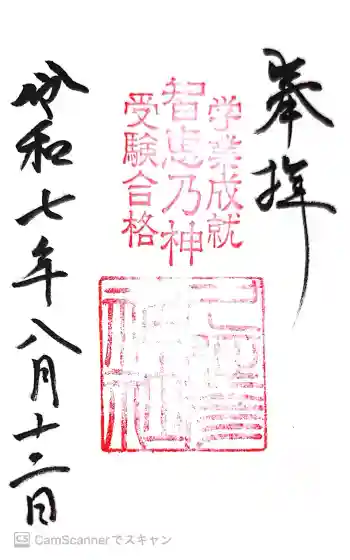 奉拝
学業成就
智恵乃神
受験合格
神社
令和七年八月十二日
CS CamScannerでスキャン